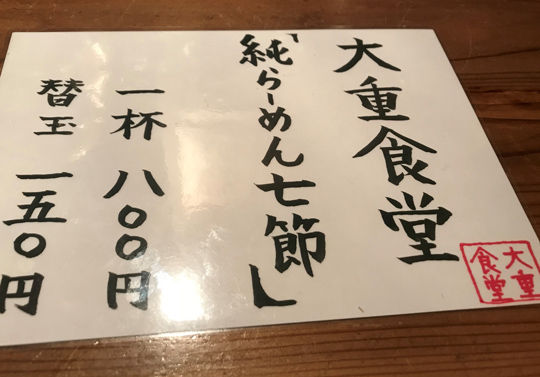 大重食堂
「純らーめん七節」
一杯 八〇〇円
替玉 一五〇円
大重
食堂